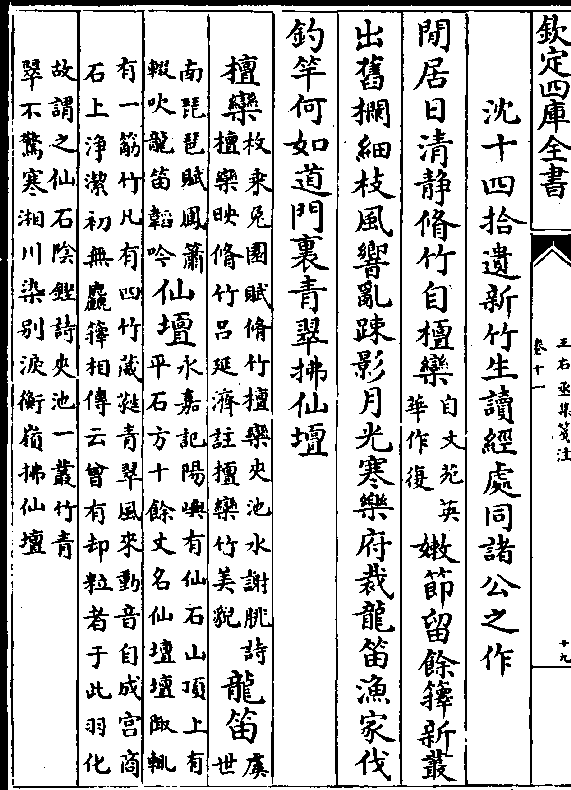 欽定四庫全書
王右丞集箋注
卷十一
十九
沈十四拾遺新竹生讀經處同諸公之作
閒居日清靜脩竹自檀欒自文苑英華作復嫩節留餘籜新叢
出舊欄細枝風響亂踈影月光寒樂府裁龍笛漁家伐
釣竿何如道門裏青翠拂仙壇
檀欒枚乘兔園賦脩竹檀欒夾池水謝朓詩檀欒映脩竹呂延濟註檀欒竹美貌龍笛虞世
南琵琶賦鳳簫輟吹龍笛韜吟仙壇永嘉記陽嶼有仙石山頂上有平石方十餘丈名仙壇壇陬輒
有一筋竹凡有四竹葳蕤青翠風來動音自成宮商
石上淨潔初無麤籜相傳云曾有却粒者于此羽化
故謂之仙石陰鏗詩夾池一叢竹青
翠不驚寒湘川染别淚衡嶺拂仙壇